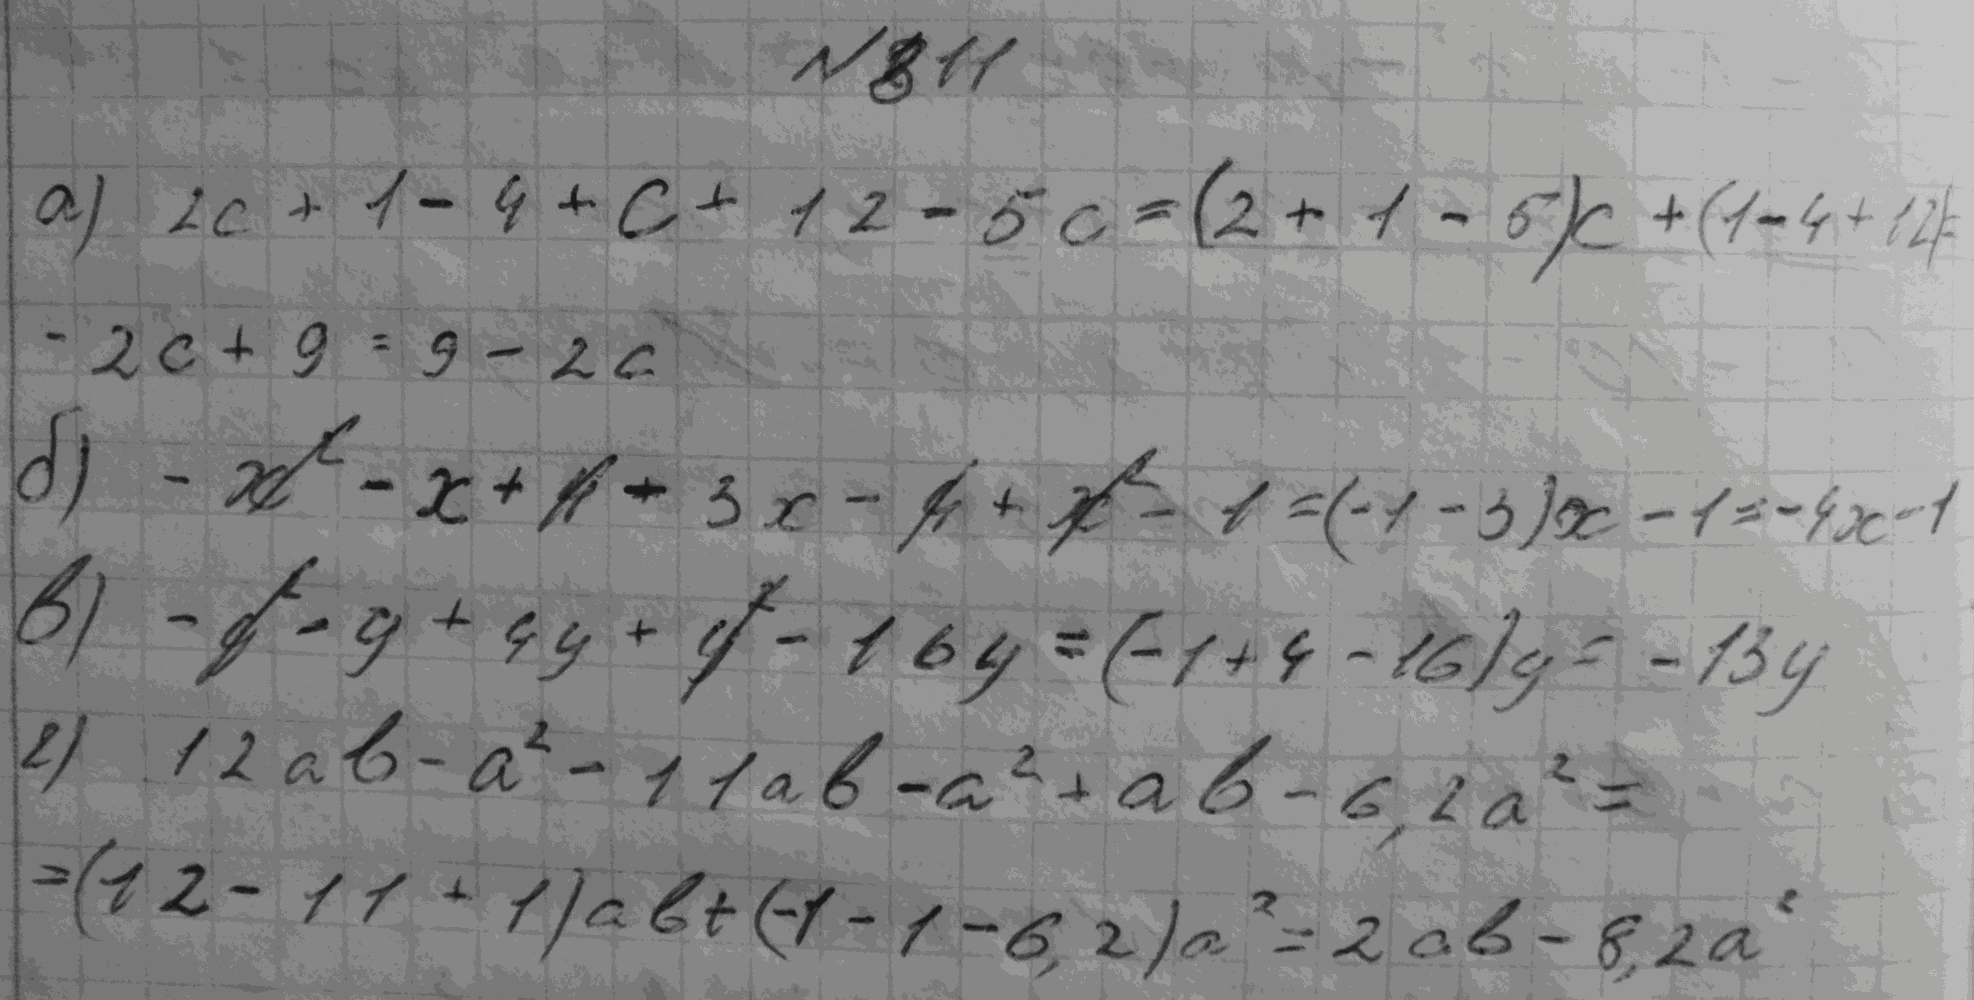 №811
а) 2c + 1 - 4 + c + 12 - 5c = (2 + 1 - 5)c + (1 - 4 + 12) =
- 2c + 9 = 9 - 2c
б) - x² - x + 4 - 3x - 4 + x² - 1 = (-1 - 3)x - 1 = -4x - 1
в) - y² - y + 4y + y² - 16y = (-1 + 4 - 16)y = -13y
г) 12ab - a² - 11ab - a² + ab - 6,2a² =
= (12 - 11 + 1)ab + (-1 - 1 - 6,2)a² = 2ab - 8,2a²